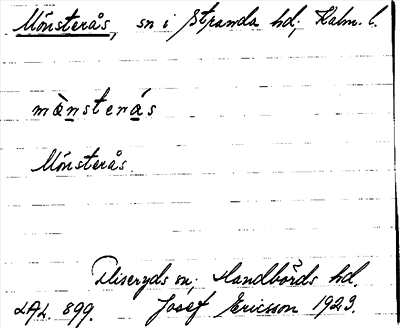 Mönsterås, sn i Stranda hd; Kalm. l.
mònsterás
Mönsterås.
Fliseryds sn; Handbörds hd.
LAL. 899. Josef Ericsson 1923.